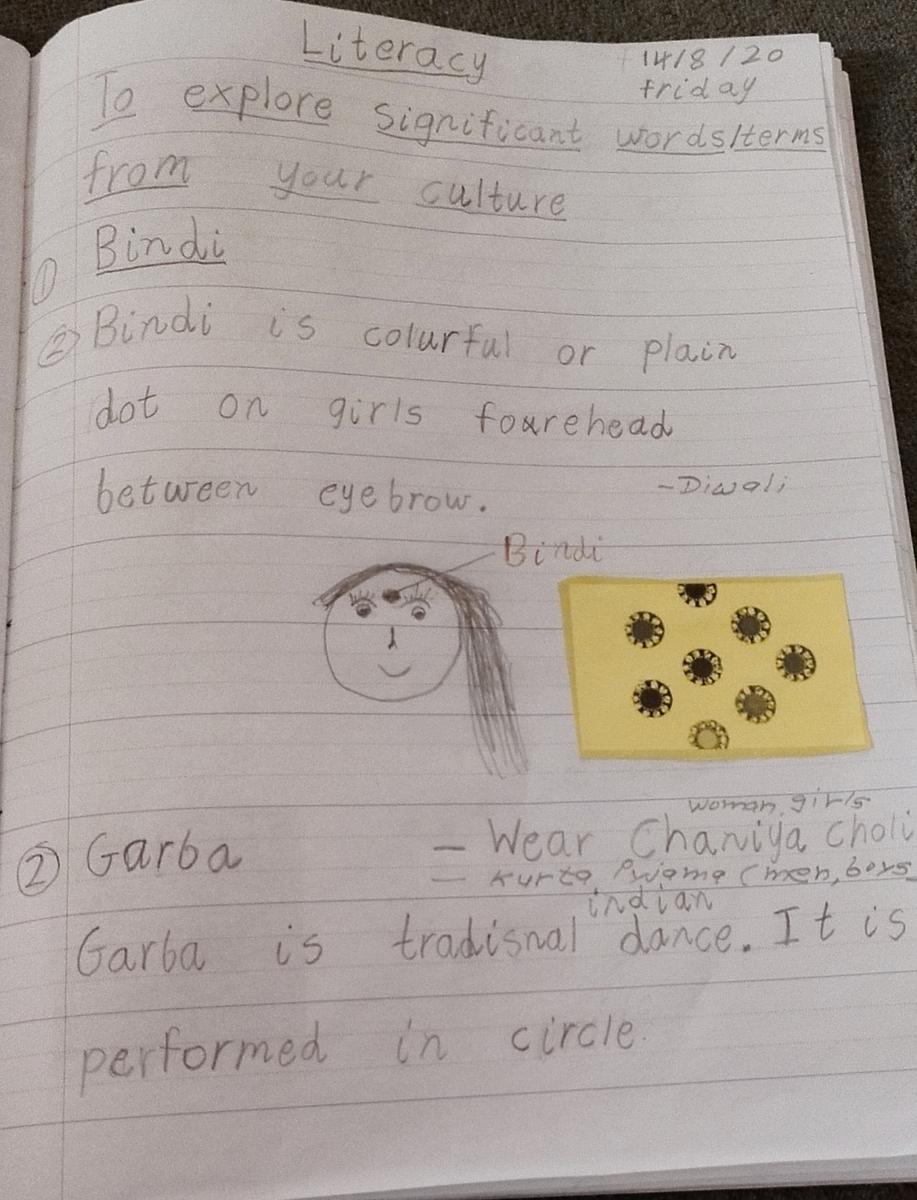 Literacy
14/8/20
friday
To explore significant words/terms
from your culture
① Bindi
② Bindi is colurful or plain
dot on girls fourehead
between eyebrow.
-Diwali
Bindi
woman, girls
② Garba - Wear Chaniya Choli
- Kurta Pyjama (men, boys
indian
Garba is tradisnal dance. It is
performed in circle.